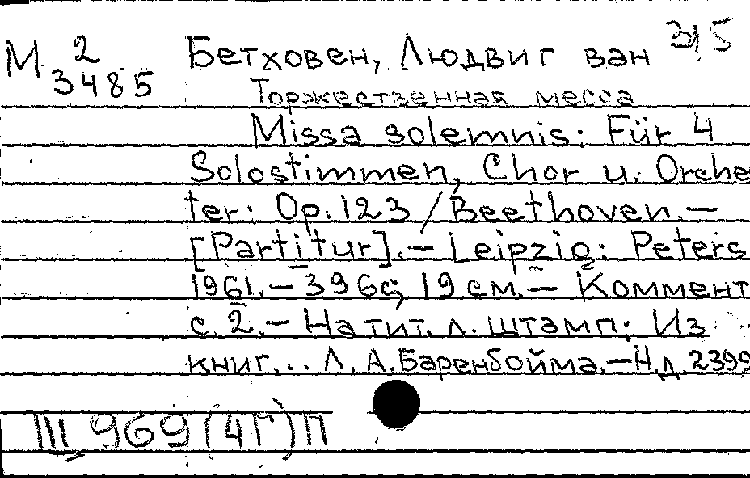 М 2 Бетховен, Людвиг ван 315
3485
Торжественная месса
Missa solemnis: Für 4
Solostimmen, Chor u. Orches
ter: Op. 123 / Beethoven. —
[Partitur]. — Leipzig: Peters
1961. — 396 с; 19 см. — Коммент
с. 2. — На тит. л. штамп: Из
книг... Л. А. Баренбойма. — Н.д. 2399
III 969 (4Г) П